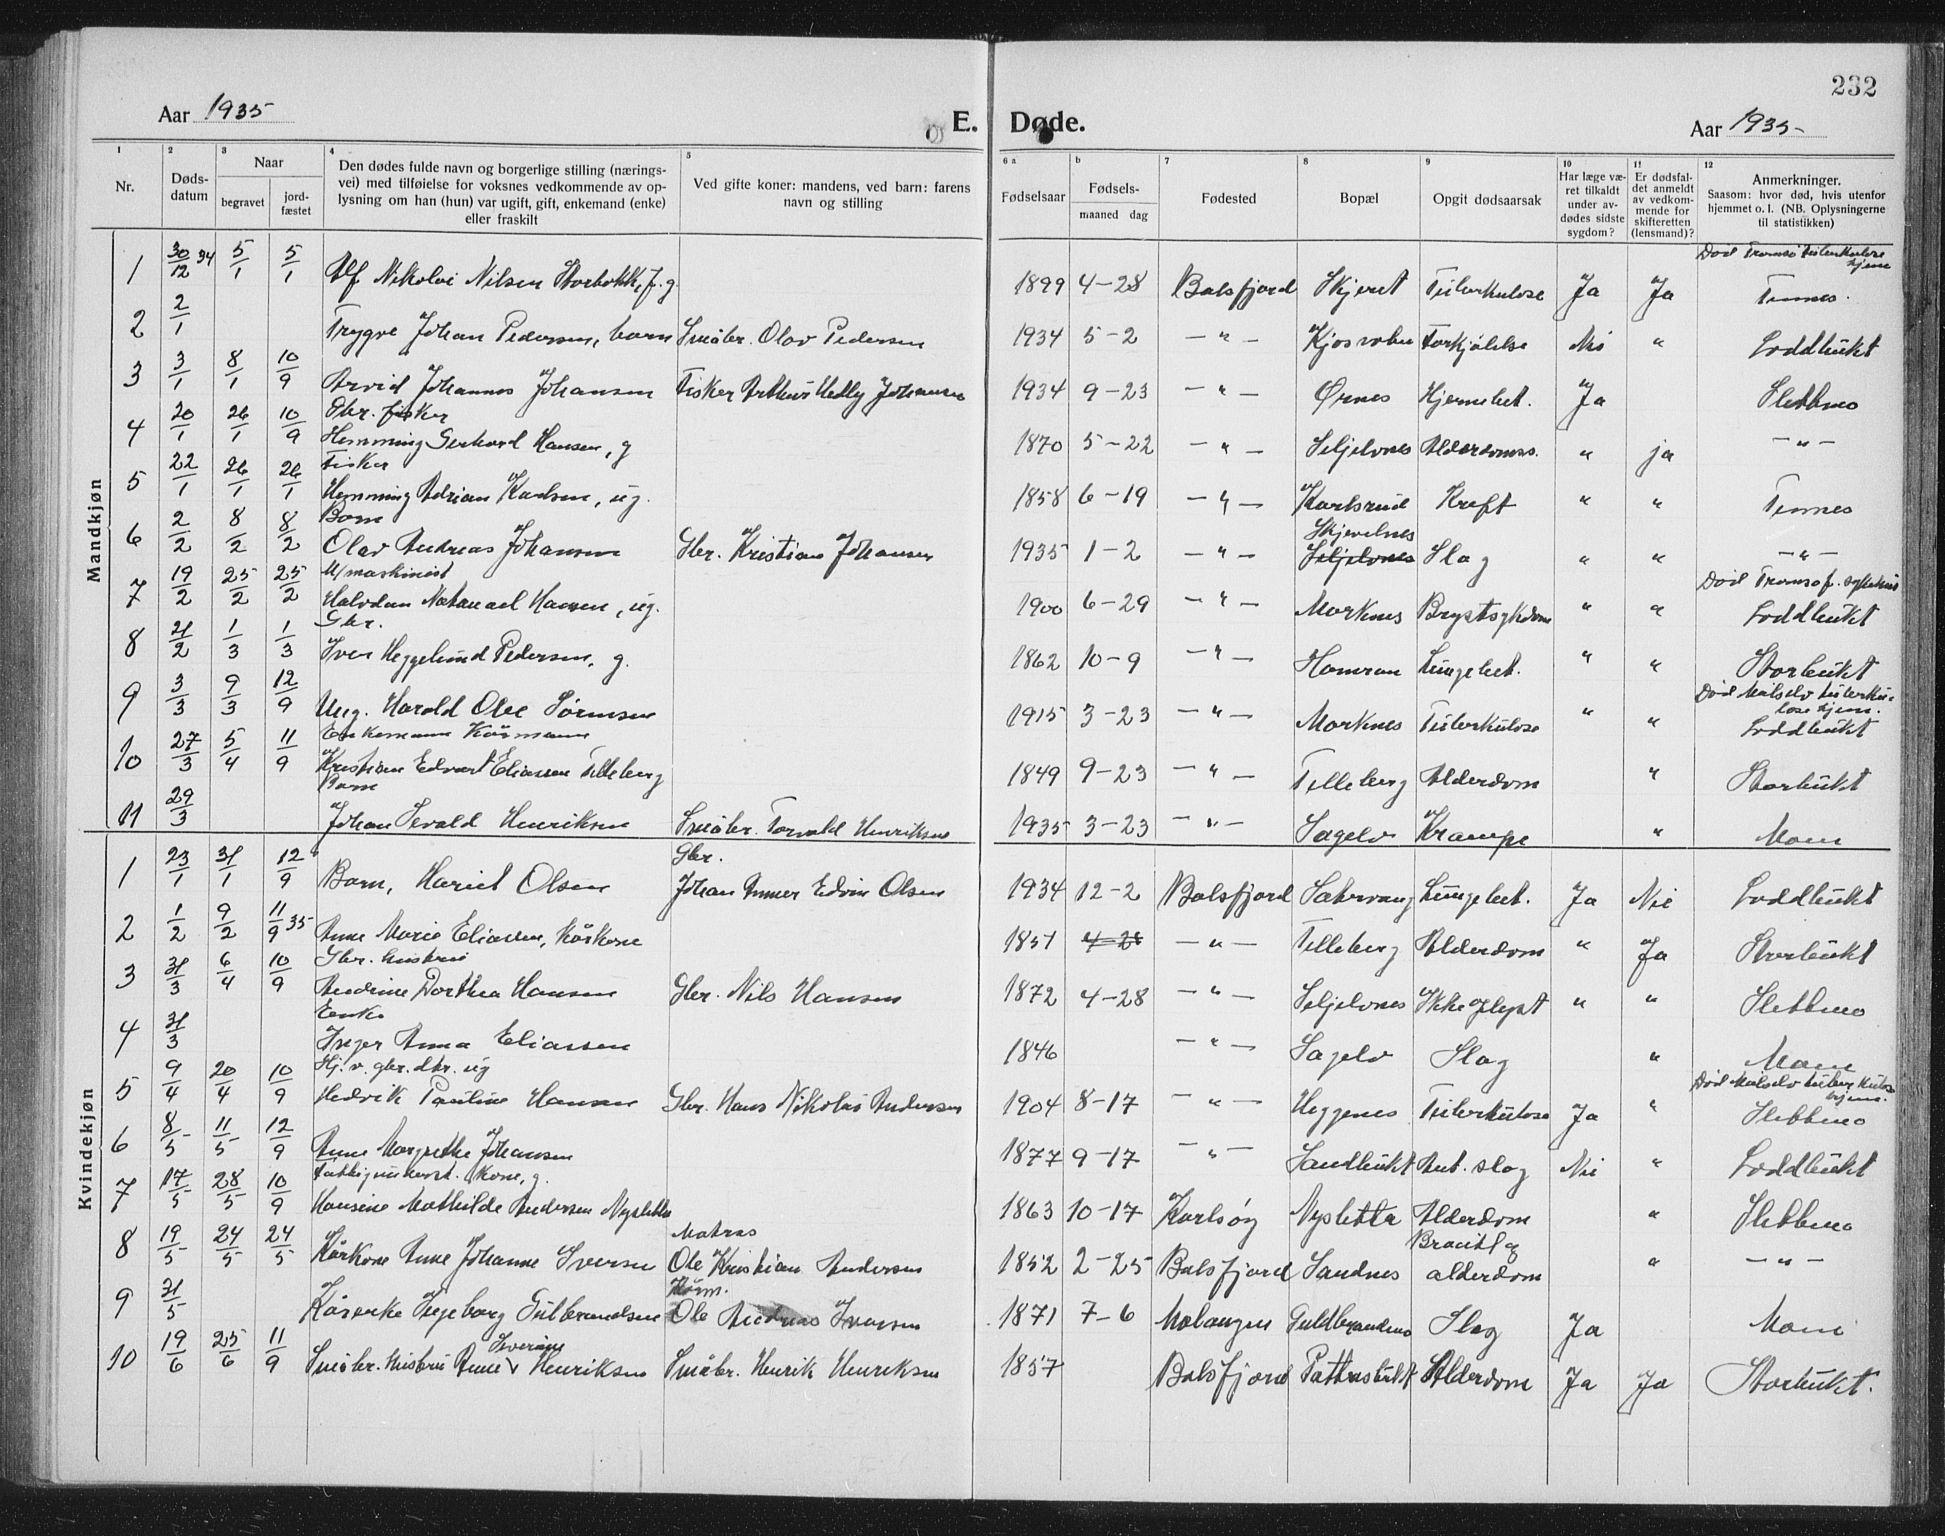 232
Aar 1935
E. Døde.
Aar 1935
1 2 3 4 5 6 a b 7 8 9 10 11 12
Nr. Dødsdatum Naar begravet jordfæstet
Den dødes fulde navn og borgerlige stilling (næringsvei) med tilføielse for voksnes vedkommende av oplysning om han (hun) var ugift, gift, enkemand (enke) eller fraskilt
Ved gifte koner: mandens, ved barn: farens navn og stilling
Fødselsaar Fødsels- maaned dag Fødested Bopæl Opgit dødsaarsak
Har læge været tilkaldt under avdødes sidste sygdom?
Er dødsfaldet anmeldt av vedkommende for skifteretten (lensmand)?
Anmerkninger. Saasom: hvor død, hvis utenfor hjemmet o. l. (NB. Oplysningerne til statistikken)
Mandkjøn
1 30/12 34 5/1 5/1 Alf Nikolai Nilsen Storbakk, f. g. 1899 4-28 Balsfjord Skjeret Tuberkulose Ja Ja Død Tromsø tuberkulosehjem Tennes.
2 2/1 Trygve Johan Pedersen, barn Småbr. Olav Pedersen 1934 5-2 -"- Kjosvolen Forkjølelse Nei " Loddbukt
3 3/1 8/1 10/9 Arvid Johannes Johansen Fisker Arthur Hedly Johansen 1934 9-23 -"- Ørnes Hjernebet. Ja Slettmo
4 20/1 26/1 10/9 Gbr. fisker Hemming Gerhard Hansen, g 1870 5-22 -"- Seljelvnes Alderdomss. " ja -"-
5 22/1 26/1 26/1 Fisker Hemming Adrian Karlsen, ug. 1858 6-19 -"- Karlsrud Kreft " " Tennes
6 2/2 8/2 8/2 Barn Olav Andreas Johansen Gbr. Kristian Johansen 1935 1-2 -"- Skjevelnes Seljelvnes Slag " " -"-
7 19/2 25/2 25/2 M/maskinist Halvdan Natanael Hansen, ug. 1900 6-29 -"- Morknes Brystsykdom " " Død Tromsø f. sykehus Loddbukt
8 21/2 1/3 1/3 Gbr. Iver Heggelund Pedersen, g. 1862 10-9 -"- Hamran Lungebet. " " Storbukt
9 3/3 9/3 12/9 Ung. Harald Olee Sørensen 1915 3-23 -"- Morknes Tuberkulose " " Død Målselv tuberkulosehjem. Loddbukt
10 27/3 5/4 11/9 Enkemann Kårmann Kristian Edvart Eliassen Tilleberg 1849 9-23 -"- Tilleberg Alderdom " Storbukt
11 29/3 Barn Johan Sevald Henriksen Småbr. Torvald Henriksen 1935 3-23 -"- Sagelv Krampe " Moan
Kvindekjøn
1 23/1 31/1 12/9 Barn, Hariet Olsen Gbr. Johan Anner Edvin Olsen 1934 12-2 Balsfjord Sætervang Lungebet. Ja Nei Loddbukt
2 1/2 9/2 11/9 35 Anne Marie Eliassen, kårkone 1851 4-28 -"- Tilleberg Alderdom " Ja Storbukt
3 31/3 6/4 10/9 Gbr. hustru Andrine Dorthea Hansen Gbr. Nils Hansen 1872 4-28 -"- Seljelvnes Ikke oplyst " " Slettmo
4 31/3 Enke Inger Anna Eliassen 1846 -"- Sagelv Slag " Moan
5 9/4 20/4 10/9 Hj. v. gbr. dtr. ug Hedvik Pauline Hansen Gbr. Hans Nikolai Andersen 1904 8-17 -"- Heggenes Tuberkulose Ja " Død Målselv tuberkulosehjem. Slettmo
6 8/5 11/5 12/9 Anne Margrethe Johansen 1877 9-17 -"- Sandbukt Ant. slag Nei " Loddbukt
7 17/5 28/5 10/9 Fattigunderst. kone, g. Hansine Mathilde Andersen Nysletta 1863 10-17 Karlsøy Nysletta Alderdom " Slettmo
8 19/5 24/5 24/5 Kårkone Anne Johanne Iversen Matros Ole Kristian Andersen 1852 2-25 Balsfjord Sandnes Bracitl og alderdom " -"-
9 31/5 Kårenke Ingeborg Gulbrandsen Kårm. Ole Andreas Iversen 1871 7-6 Malangen Guldbrandmo Slag Ja Moan
10 19/6 25/6 11/9 Småbr. hustru Anne Iverine Henriksen Småbr. Henrik Henriksen 1857 Balsfjord Alderdom Ja Ja Storbukt.